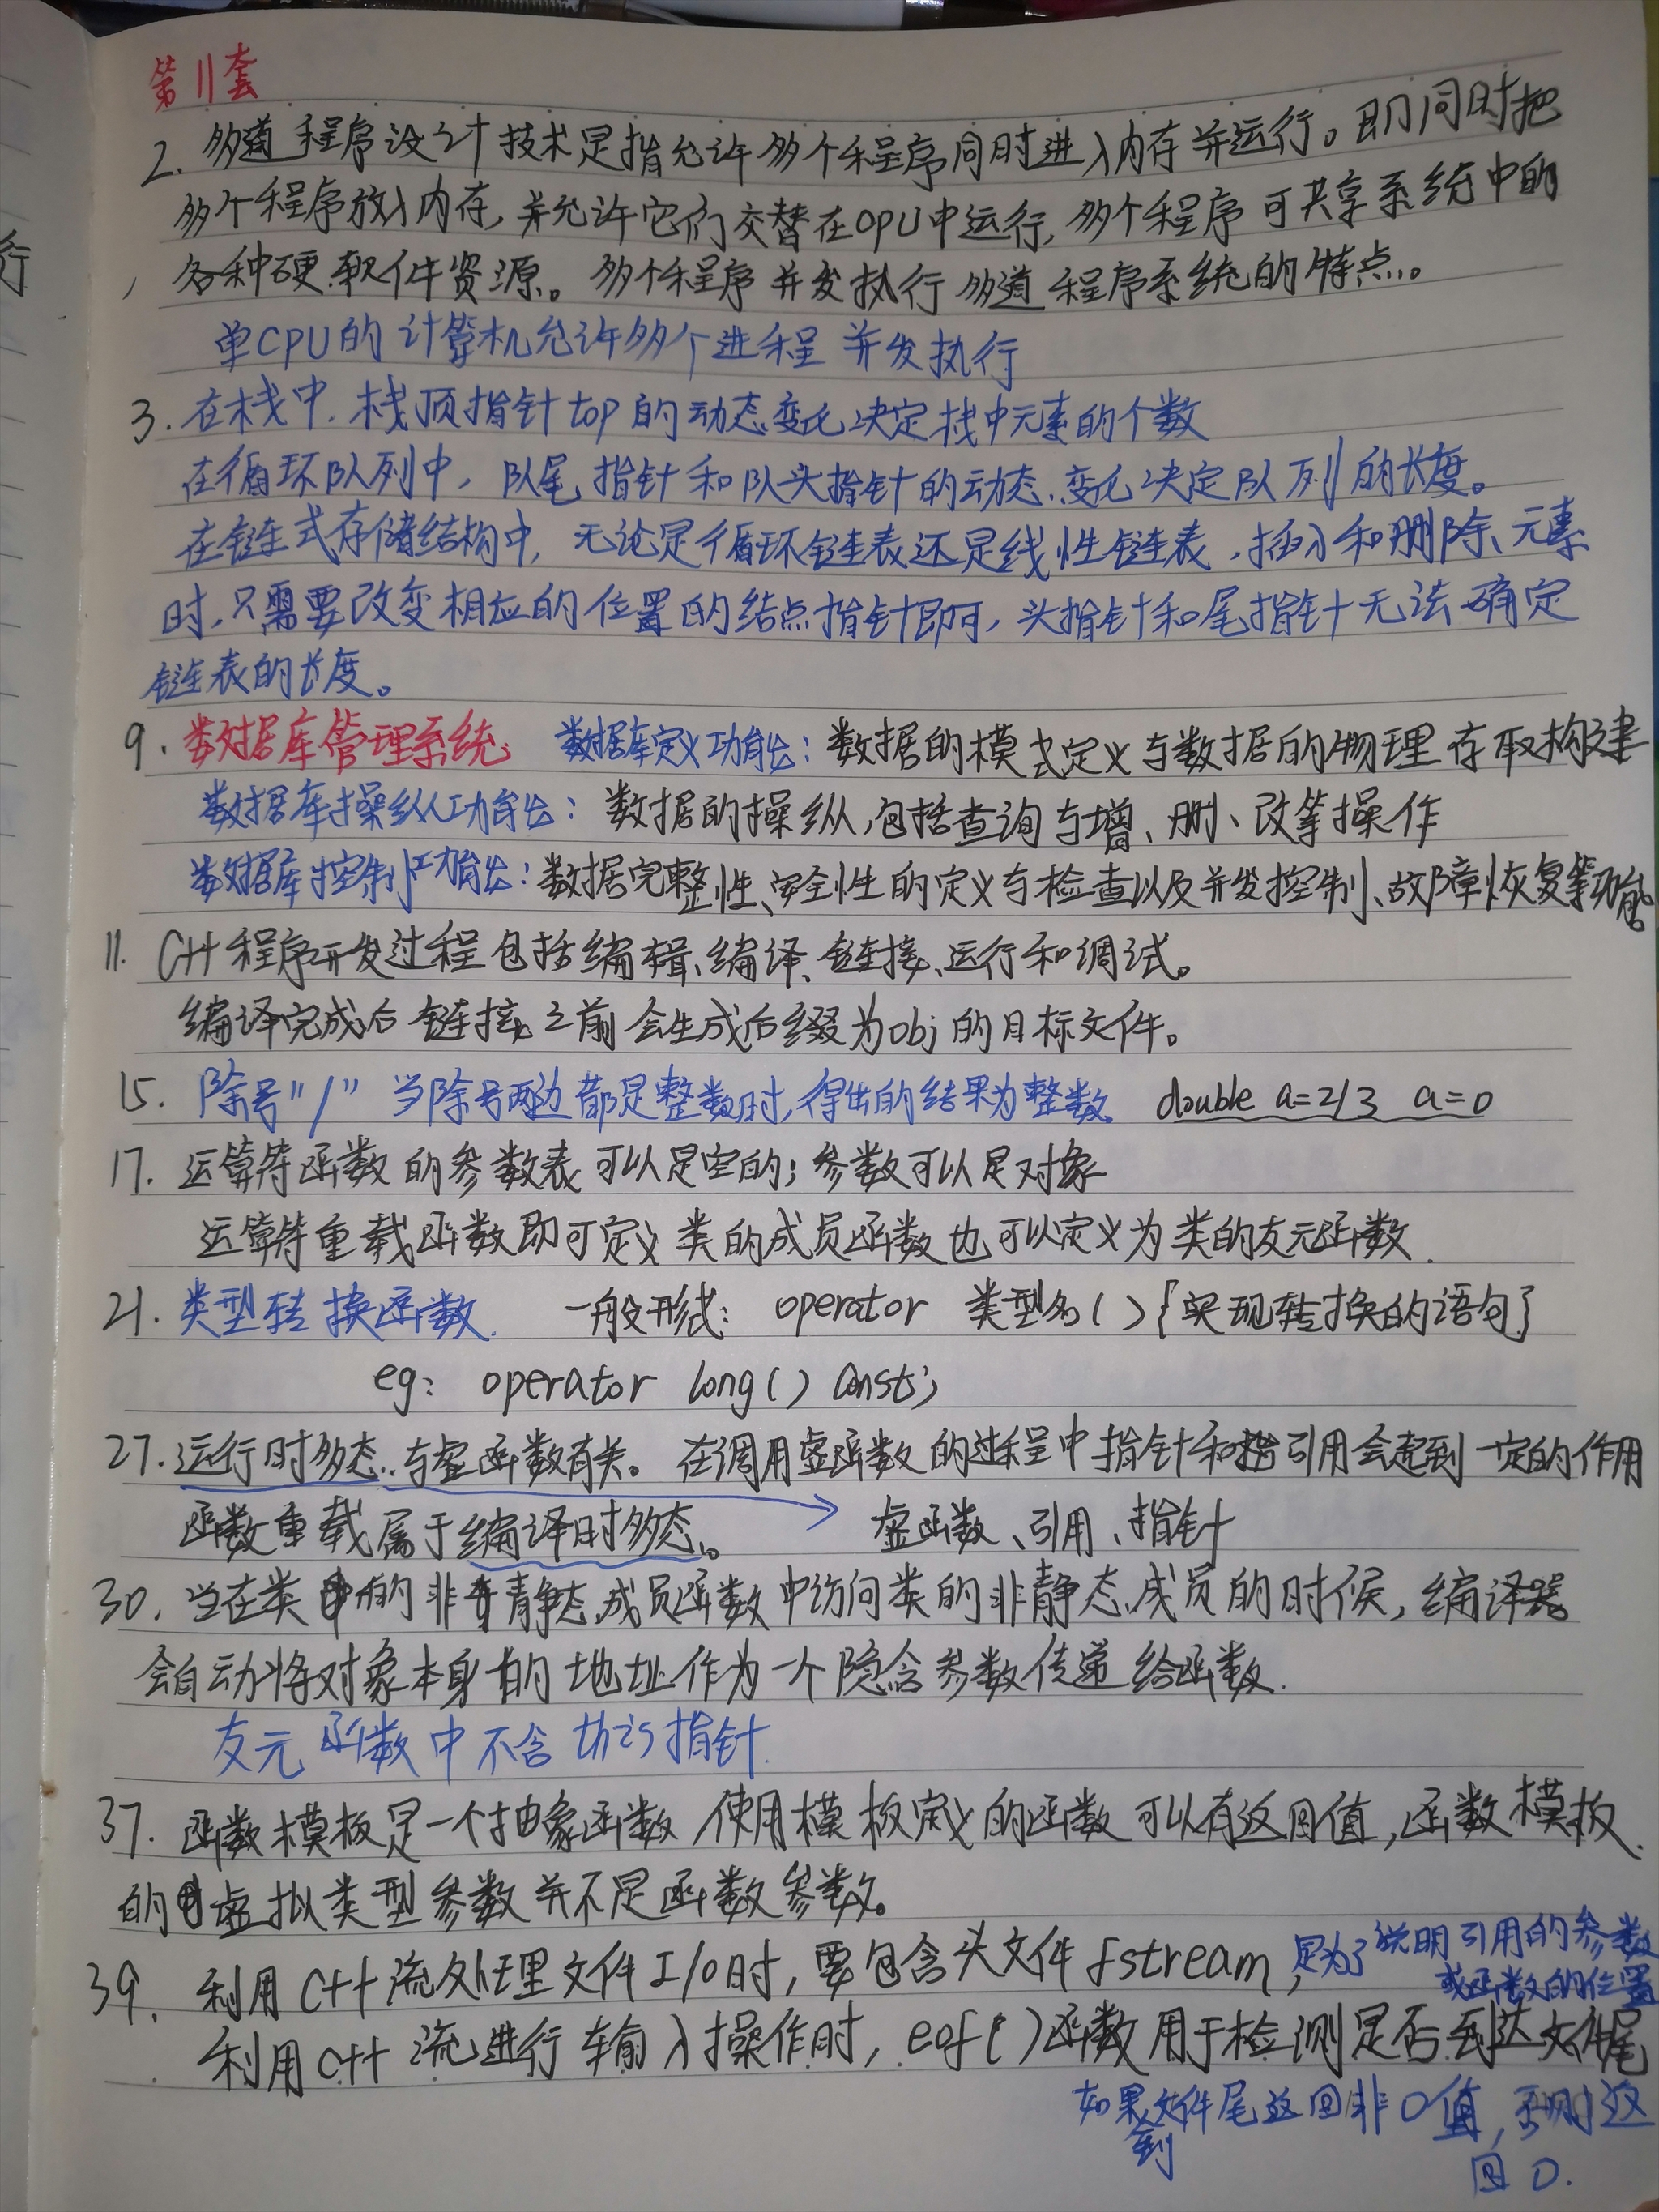 行
第11套
2. 多道程序设计技术是指允许多个程序同时进入内存并运行。即同时把
多个程序放入内存,并允许它们交替在CPU中运行,多个程序可共享系统中的
各种硬软件资源。多个程序并发执行多道程序系统的特点。
单CPU的计算机允许多个进程并发执行
3. 在栈中,栈顶指针top的动态变化决定栈中元素的个数
在循环队列中,队尾指针和队头指针的动态变化决定队列的长度。
在链式存储结构中,无论是循环链表还是线性链表,插入和删除元素
时,只需要改变相应的位置的结点指针即可,头指针和尾指针无法确定
链表的长度。
9. 数据库管理系统 数据库定义功能:数据的模式定义与数据的物理存取构建
数据库操纵功能:数据的操纵,包括查询与增、删、改等操作
数据库控制功能:数据完整性、安全性的定义与检查以及并发控制、故障恢复等功能
11. C++程序开发过程包括编辑、编译、链接、运行和调试。
编译完成后链接之前会生成后缀为obj的目标文件。
15. 除号"/" 当除号两边都是整数时,得出的结果为整数 double a=2/3 a=0
17. 运算符函数的参数表可以是空的;参数可以是对象
运算符重载函数即可定义类的成员函数也可以定义为类的友元函数.
21. 类型转换函数. 一般形式: operator 类型名(){实现转换的语句}
eg: operator long() const;
27. 运行时多态与虚函数有关。在调用虚函数的过程中指针和引用会起到一定的作用
函数重载属于编译时多态。 虚函数、引用、指针
30. 当在类的非静态成员函数中访问类的非静态成员的时候,编译器
会自动将对象本身的地址作为一个隐含参数传递给函数.
友元函数中不含this指针.
37. 函数模板是一个抽象函数,使用模板定义的函数可以有返回值,函数模板
的虚拟类型参数并不是函数参数。
39. 利用C++流处理文件I/O时,要包含头文件fstream, 是为了说明引用的参数
或函数的位置
利用C++流进行输入操作时,eof()函数用于检测是否到达文件尾
如果到文件尾返回非0值,否则返
回0.